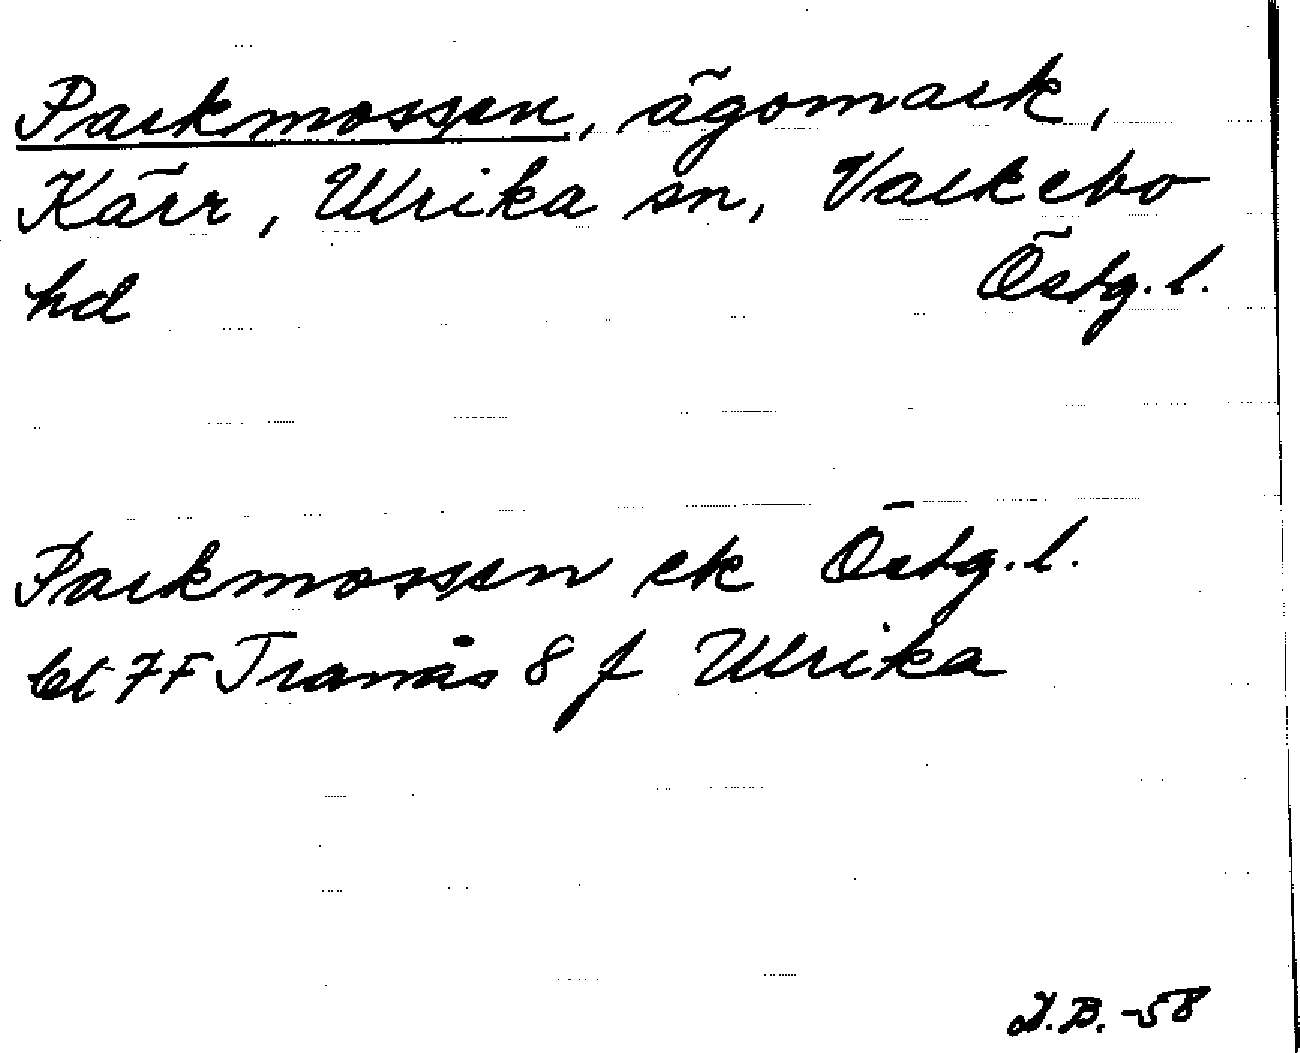 Parkmossen, ägomark,
Kärr, Ulrika sn, Valkebo
hd Östg. l.
Parkmossen ek Östg. l.
bl 7F Tranås 8 f Ulrika
D.B. -58